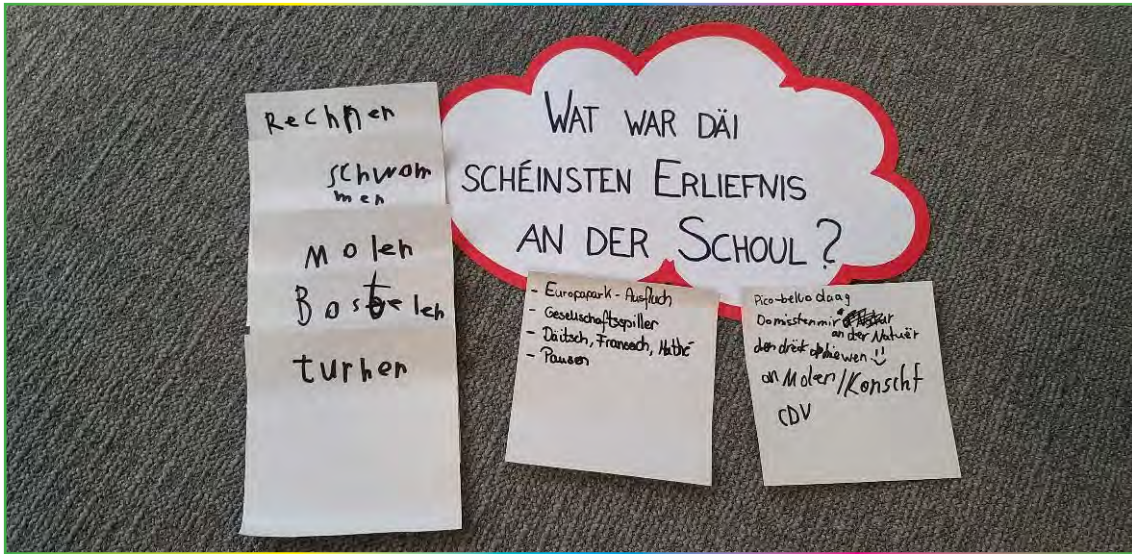 WAT WAR DÄI
SCHÉINSTEN ERLIEFNIS
AN DER SCHOUL?
Rechnen
schwom
men
Molen
Bastelen
turnen
- Europapark - Ausfluch
- Gesellschaftspiller
- Däitsch, Franséch, Mathé
- Pausen
Pico-bello daag
Do missten mir
an der Natuër
den dreck ophiewen !!
an Molen/Konscht
CDV